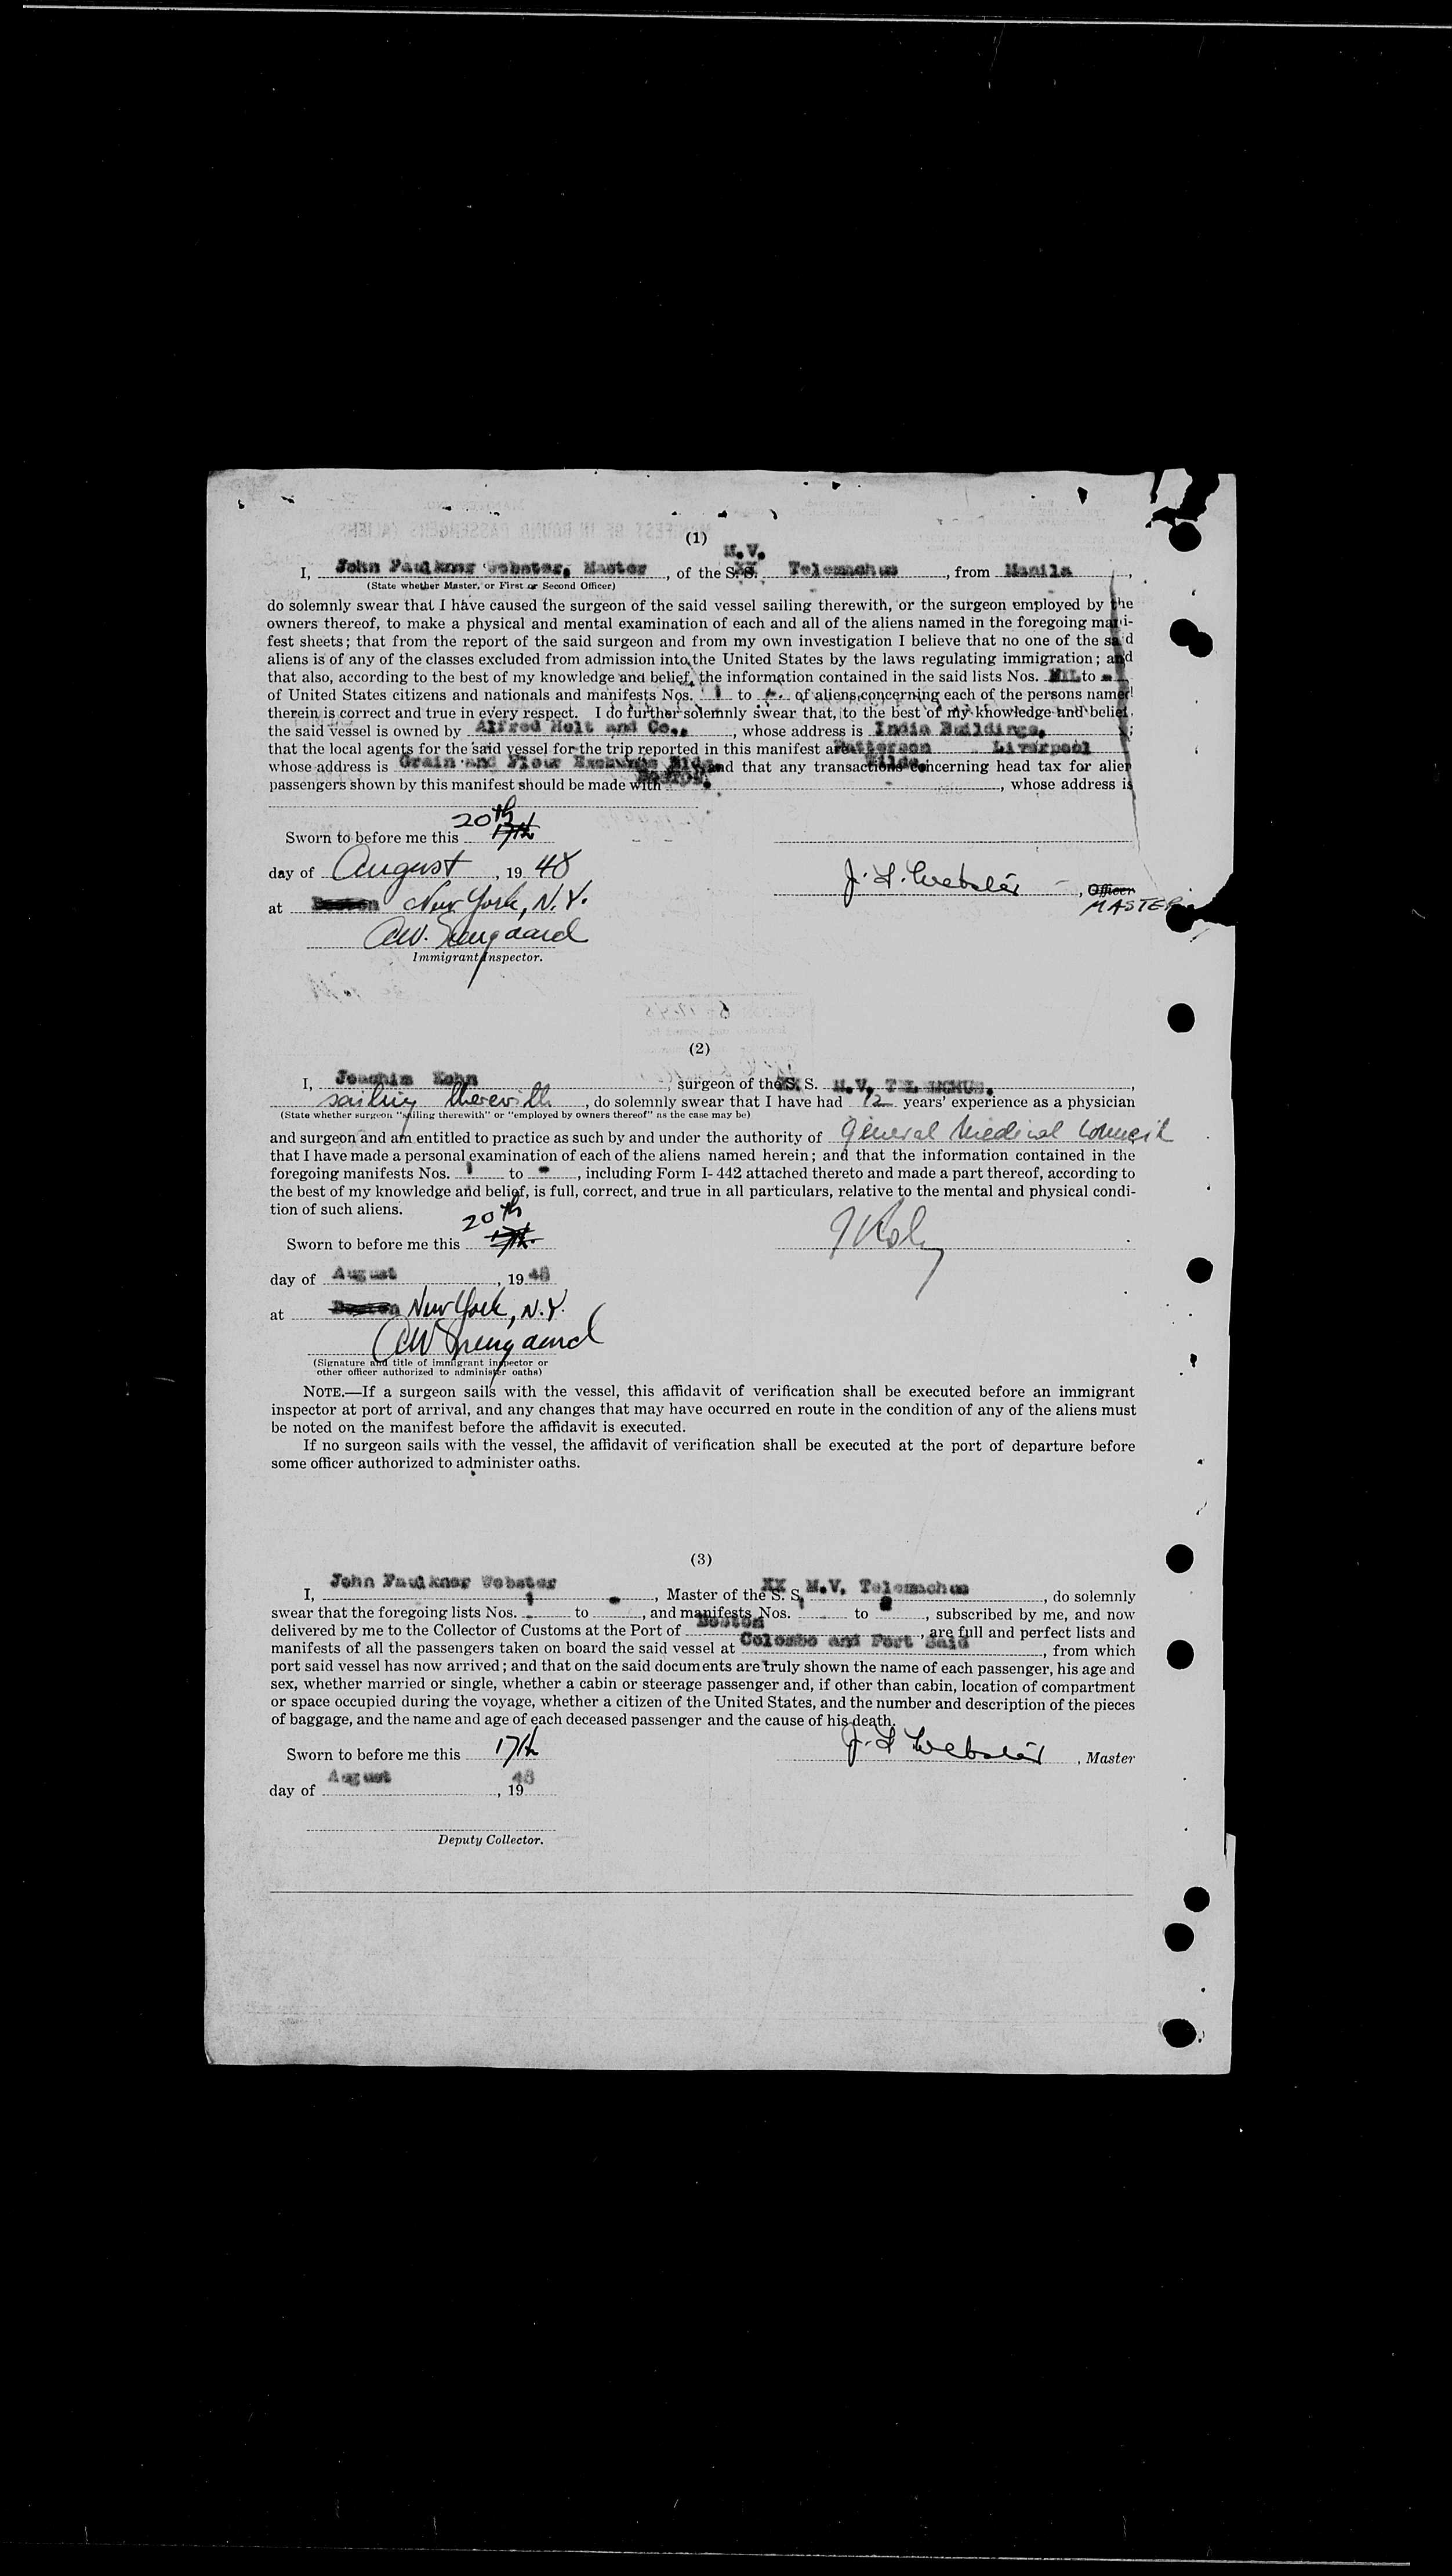 (1)
M. V.
I, John Faulkner Webster, Master, of the S. S. Telemachus, from Manila,
(State whether Master, or First or Second Officer)
do solemnly swear that I have caused the surgeon of the said vessel sailing therewith, or the surgeon employed by the
owners thereof, to make a physical and mental examination of each and all of the aliens named in the foregoing mani-
fest sheets; that from the report of the said surgeon and from my own investigation I believe that no one of the said
aliens is of any of the classes excluded from admission into the United States by the laws regulating immigration; and
that also, according to the best of my knowledge and belief, the information contained in the said lists Nos. NIL to -
of United States citizens and nationals and manifests Nos. 1 to -. of aliens, concerning each of the persons named
therein is correct and true in every respect. I do further solemnly swear that, to the best of my knowledge and belief,
the said vessel is owned by Alfred Holt and Co., whose address is India Buildings,;
that the local agents for the said vessel for the trip reported in this manifest are Patterson Liverpool
whose address is Grain and Flour Exchange Bldg and that any transactions concerning head tax for alien
Wilde.
passengers shown by this manifest should be made with Boston., whose address is
20th
Sworn to before me this 17th
day of August, 19 48
J. F. Webster, Officer
MASTER
at Boston New York, N.Y.
Immigrant Inspector.
(2)
I, Joachim Kohn, surgeon of the S. S. M. V. TELEMACHUS.,
sailing therewith, do solemnly swear that I have had 12 years' experience as a physician
(State whether surgeon "sailing therewith" or "employed by owners thereof" as the case may be)
and surgeon and am entitled to practice as such by and under the authority of General Medical Council
that I have made a personal examination of each of the aliens named herein; and that the information contained in the
foregoing manifests Nos. 1 to -, including Form I-442 attached thereto and made a part thereof, according to
the best of my knowledge and belief, is full, correct, and true in all particulars, relative to the mental and physical condi-
tion of such aliens.
20th
Sworn to before me this 17th.
day of August, 19 48
at Boston New York, N.Y.
(Signature and title of immigrant inspector or
other officer authorized to administer oaths)
NOTE.—If a surgeon sails with the vessel, this affidavit of verification shall be executed before an immigrant
inspector at port of arrival, and any changes that may have occurred en route in the condition of any of the aliens must
be noted on the manifest before the affidavit is executed.
If no surgeon sails with the vessel, the affidavit of verification shall be executed at the port of departure before
some officer authorized to administer oaths.
(3)
I, John Faulkner Webster, Master of the S. S. XX M.V. Telemachus, do solemnly
swear that the foregoing lists Nos. 1 to -, and manifests Nos. 1 to 2, subscribed by me, and now
delivered by me to the Collector of Customs at the Port of Boston, are full and perfect lists and
manifests of all the passengers taken on board the said vessel at Colombo and Port Said, from which
port said vessel has now arrived; and that on the said documents are truly shown the name of each passenger, his age and
sex, whether married or single, whether a cabin or steerage passenger and, if other than cabin, location of compartment
or space occupied during the voyage, whether a citizen of the United States, and the number and description of the pieces
of baggage, and the name and age of each deceased passenger and the cause of his death.
Sworn to before me this 17th
J. F. Webster, Master
day of August, 19 48
Deputy Collector.